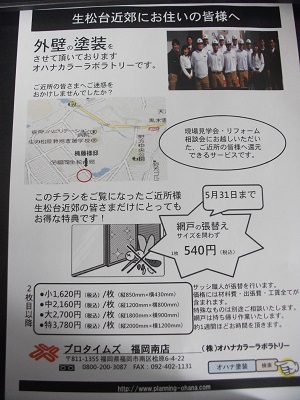 生松台近郊にお住いの皆様へ
外壁の塗装を
させて頂いております
オハナカラーラボラトリーです。
ご近所の皆さまへご迷惑を
おかけしませんでしたか?
現場見学会・リフォーム
相談会にお越しいただい
た、ご近所の皆様へ還元
できるサービスです。
このチラシをご覧になったご近所様
生松台近郊の皆さまだけにとっても
お得な特典です!
5月31日まで
網戸の張替え
サイズを問わず
1枚 540円(税込)
2枚目以降
●小1,620円(税込)/枚(縦850mm×横430mm)
●中2,160円(税込)/枚(縦1200mm×横800mm)
●大2,700円(税込)/枚(縦1800mm×横900mm)
●特3,780円(税込)/枚
サッシ職人が張替を行います。
価格には材料費・出張費・工賃全てが
含まれます。
特殊なものは別途ご相談いたします。
網戸は持ち帰り作業いたします。
約1週間ほどお時間を頂きます。
プロタイムズ 福岡南店
(株)オハナカラーラボラトリー
〒811-1355 福岡県福岡市南区桧原6-4-22
0800-200-3087 FAX:092-402-1131
オハナ塗装 検索
http://www.planning-ohana.com/